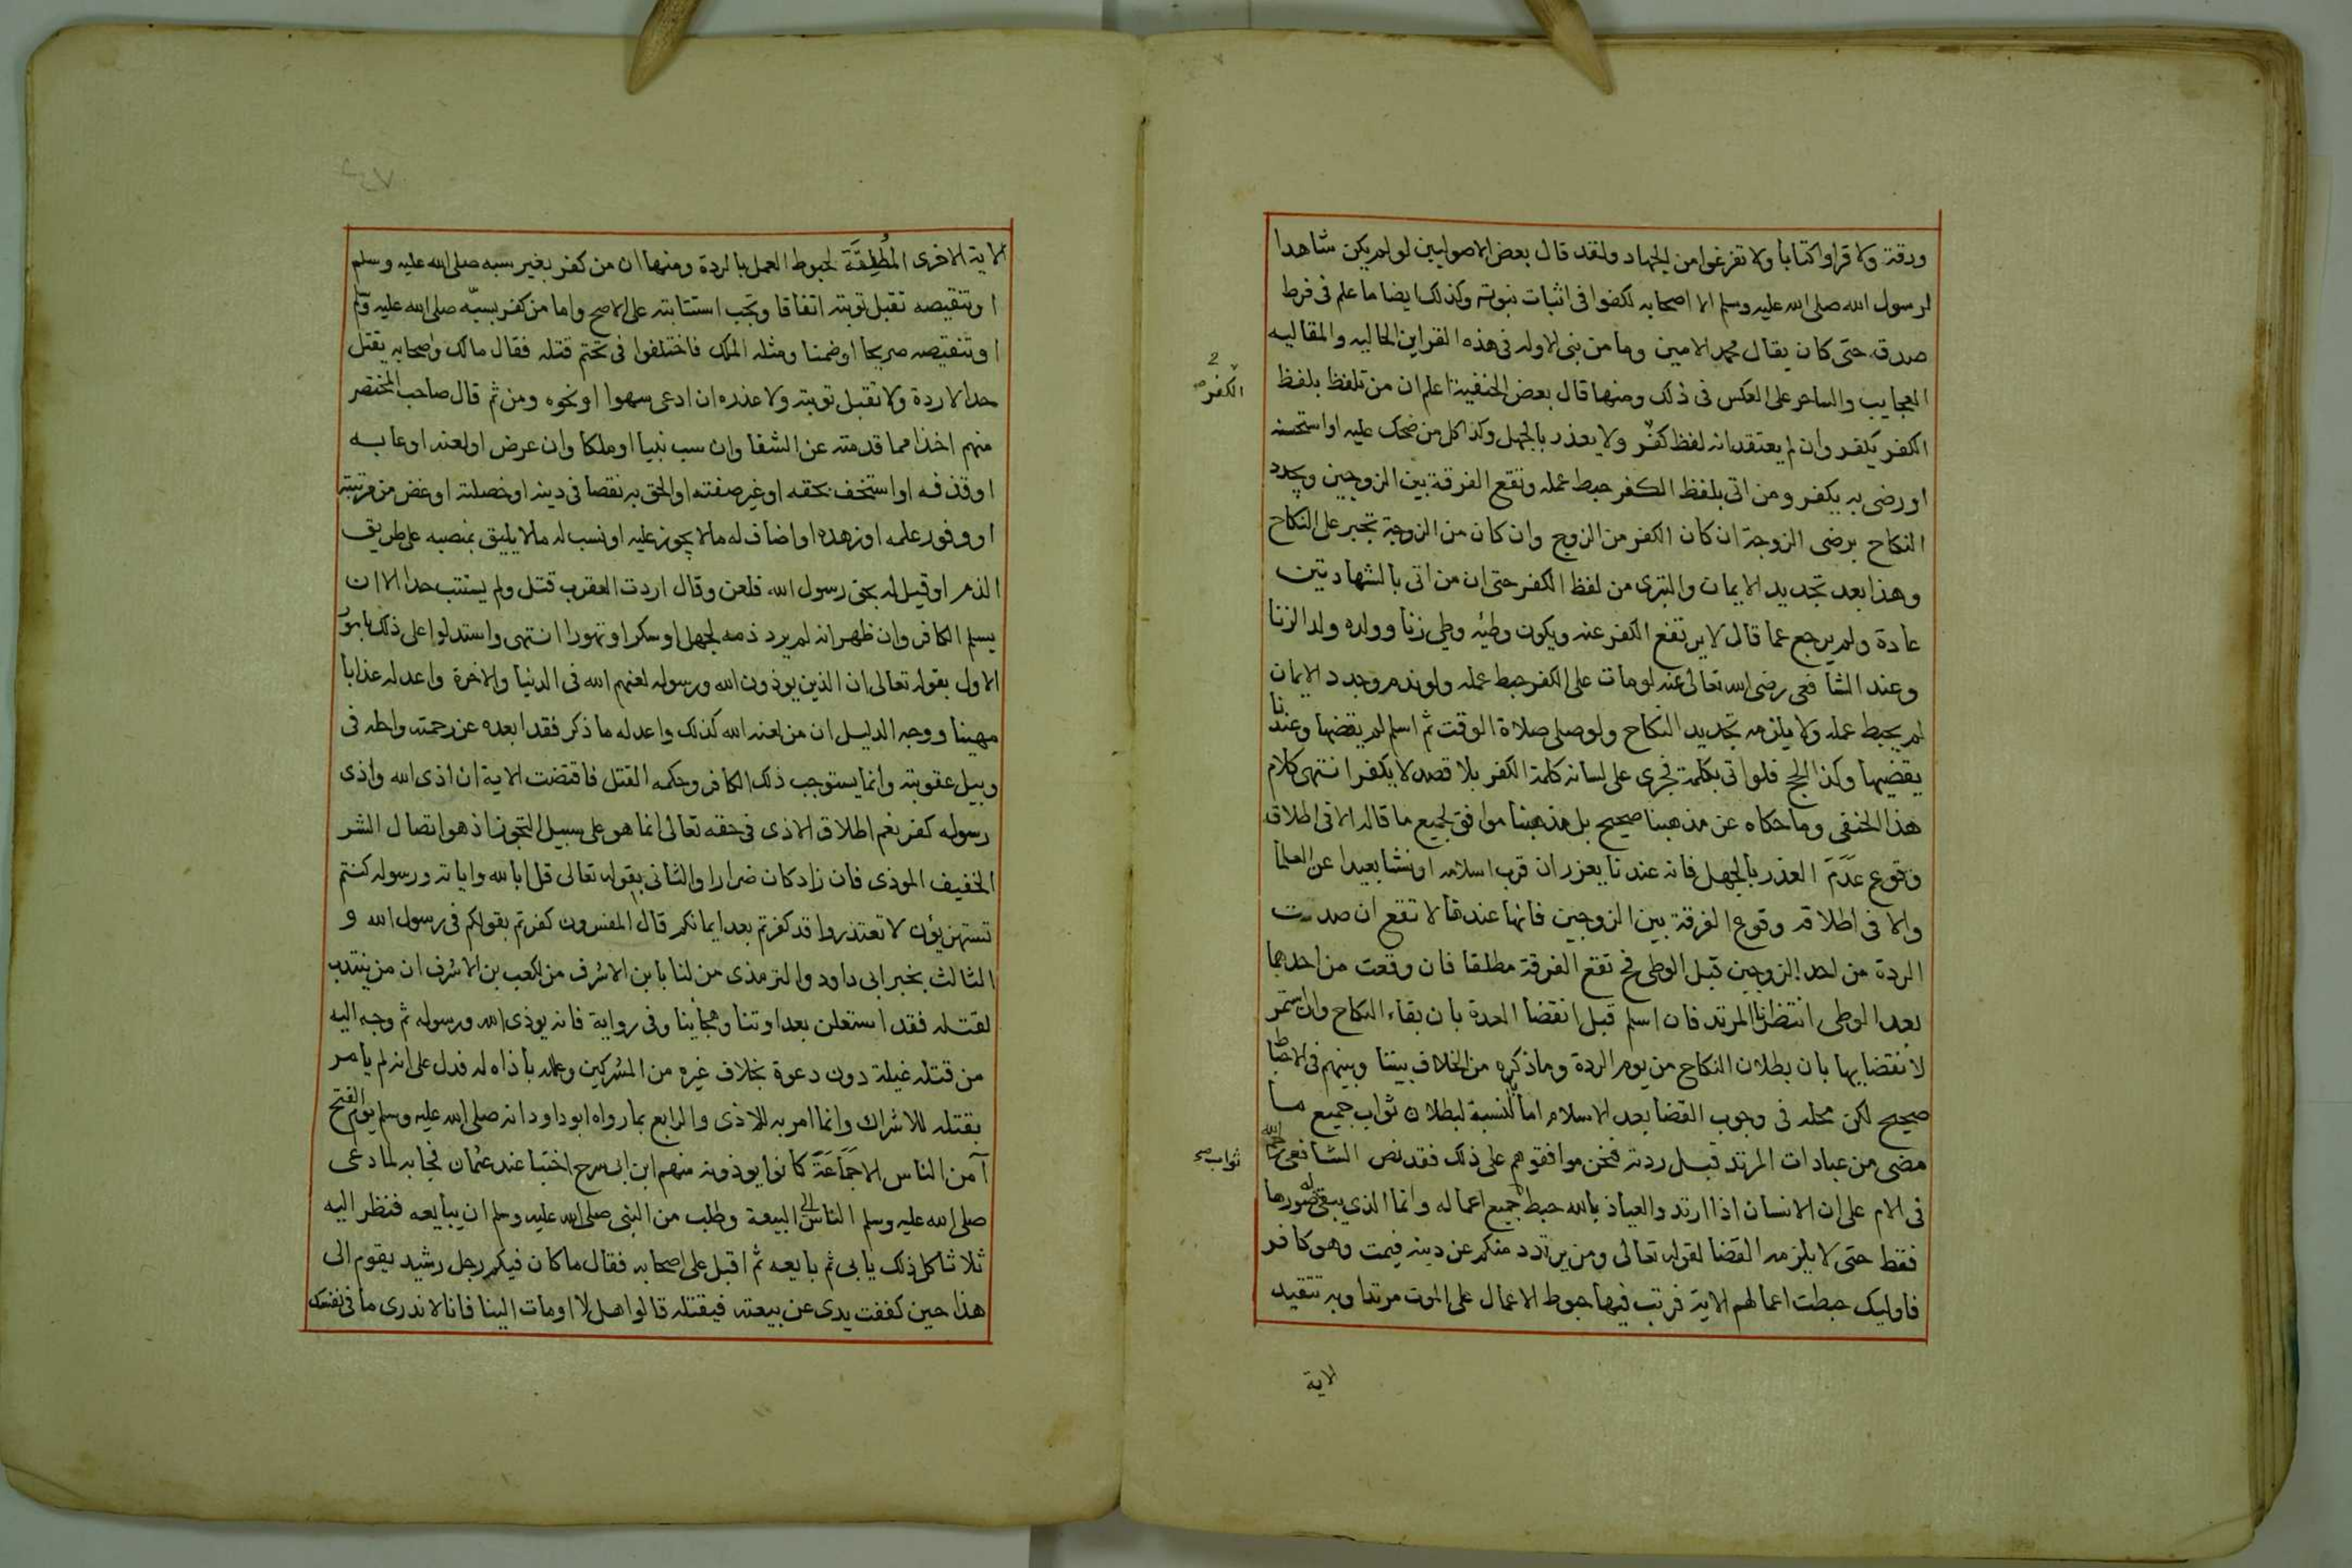 ورقة ولا قراوا كتابا ولا تفرغوا من الجهاد ولقد قال بعض الاصوليين لو لم يكن شاهدا
لرسول الله صلى الله عليه وسلم الا اصحابه لكفوا فى اثبات نبوته وكذلك ايضا ما علم فى فرط
صدقه حتى كان يقال محمد الامين وما من نبى الاوله فى هذه القراين الحاليه والمقاليه
العجايب والساحر على العكس فى ذلك ومنها قال بعض الحنفية اعلم ان من تلفظ بلفظ
الكفر
الكفر يكفر وان لم يعتقد انه لفظ كفر ولا يعذر بالجهل وكذا كل من ضحك عليه او استحسنه
او رضى به يكفر ومن اتى بلفظ الكفر حبط عمله وتقع الفرقة بين الزوجين ويجدد
النكاح برضى الزوجة ان كان الكفر من الزوج وان كان من الزوجة تجبر على النكاح
وهذا بعد تجديد الايمان والتبرى من لفظ الكفر حتى ان من اتى بالشهادتين
عادة ولم يرجع عما قال لا يرتفع الكفر عنه ويكون وطئه وطى زنا وولده ولد الزنا
وعند الشافعى رضى الله تعالى عنه لو مات على الكفر حبط عمله ولو ندم وجدد الايمان
لم يحبط عمله ولا يلزمه تجديد النكاح ولو صلى صلاة الوقت ثم اسلم لم يقضها وعندنا
يقضيها وكذا الحج فلو اتى بكلمة فجرى على لسانه كلمة الكفر بلا قصد لا يكفر انتهى كلام
هذا الحنفى وما حكاه عن مذهبنا صحيح بل مذهبنا موافق لجميع ما قاله الا فى اطلاق
وقوع عدم العذر بالجهل فانه عندنا يعذر ان قرب اسلامه او نشا بعيدا عن العلما
والا فى اطلاقه وقوع الفرقة بين الزوجين فانها عندنا لا تقع ان صدرت
الردة من احد الزوجين قبل الوطى فح تقع الفرقة مطلقا فان وقعت من احدهما
بعد الوطى انتظرنا المرتد فان اسلم قبل انقضا العدة بان بقاء النكاح وان استمر
لانقضايها بان بطلان النكاح من يوم الردة وما ذكره من الخلاف بيننا وبينهم فى الاحباط
صحيح لكن محله فى وجوب القضا بعد الاسلام اما بالنسبة لبطلان ثواب جميع ما
ثواب صح
مضى من عبادات المرتد قبل ردته فنحن موافقوهم على ذلك فقد نص الشافعى
فى الام على ان الانسان اذا ارتد والعياذ بالله حبط جميع اعماله وانما الذى يبقى له صورها
فقط حتى لا يلزمه القضا لقوله تعالى ومن يرتدد منكم عن دينه فيمت وهو كافر
فاوليك حبطت اعمالهم الاية فرتب فيها حبوط الاعمال على الموت مرتدا وبه تتقيد
الاية
الاية الاخرى المُطلِقة لحبوط العمل بالردة ومنها ان من كفر بغير سبه صلى الله عليه وسلم
او تنقيصه تقبل توبته اتفاقا وتجب استتابته على الاصح واما من كفر بسبّه صلى الله عليه وسلم
او تنقيصه صريحا او ضمنا ومثله الملك فاختلفوا فى تحتم قتله فقال مالك واصحابه يقتل
حدا لا ردة ولا تقبل توبته ولا عذره ان ادعى سهوا او نحوه ومن ثم قال صاحب المختصر
منهم اخذا مما قدمته عن الشفا وان سب نبيا او ملكا وان عرض او لعنه او عابه
او قذفه او استخف بحقه او غير صفته او الحق به نقصا فى دينه او خصلته او غض من مرتبته
او وفور علمه او زهده او اضاف له ما لا يجوز عليه او نسب له ما لا يليق بمنصبه على طريق
الذم او قيل له بحق رسول الله فلعن وقال اردت العقرب قتل ولم يستتب حدا الا ان
يسلم الكافر وان ظهر انه لم يرد ذمه لجهل او سكر او تهورا انتهى واستدلوا على ذلك بامور
الاول بقوله تعالى ان الذين يوذون الله ورسوله لعنهم الله فى الدنيا والاخرة واعد لهم عذابا
مهينا ووجه الدليل ان من لعنه الله كذلك واعد له ما ذكر فقد ابعده عن رحمته واحله فى
وبيل عقوبته وانما يستوجب ذلك الكافر وحكمه القتل فاقتضت الاية ان اذى الله واذى
رسوله كفر نعم اطلاق الاذى فى حقه تعالى انما هو على سبيل التجوز اذ هو اتصال الشر
الخفيف الموذى فان زاد كان ضرارا والثانى بقوله تعالى قل ابالله واياته ورسوله كنتم
تستهزؤن لا تعتذروا قد كفرتم بعد ايمانكم قال المفسرون كفرتم بقولكم فى رسول الله و
الثالث بخبر ابى داود والترمذى من لنا بابن الاشرف من لكعب بن الاشرف ان من ينتدب
لقتله فقد استعلن بعداوتنا وهجاينا وفى رواية فانه يوذى الله ورسوله ثم وجه اليه
من قتله غيلة دون دعوة بخلاف غيره من المشركين وعلله باذاه له فدل على انه لم يامر
بقتله للاشراك وانما امر به للاذى والرابع بما رواه ابو داود انه صلى الله عليه وسلم يوم الفتح
آمن الناس الا جَمَاعَةً كانوا يوذونه منهم ابن ابى سرح اختبا عند عثمان فجا به لما دعى
صلى الله عليه وسلم الناس الى البيعة وطلب من النبى صلى الله عليه وسلم ان يبايعه فنظر اليه
ثلاثا كل ذلك يابى ثم بايعه ثم اقبل على اصحابه فقال ما كان فيكم رجل رشيد يقوم الى
هذا حين كففت يدى عن بيعته فيقتله قالوا هلا اومات الينا فانا لا ندرى ما فى نفسك